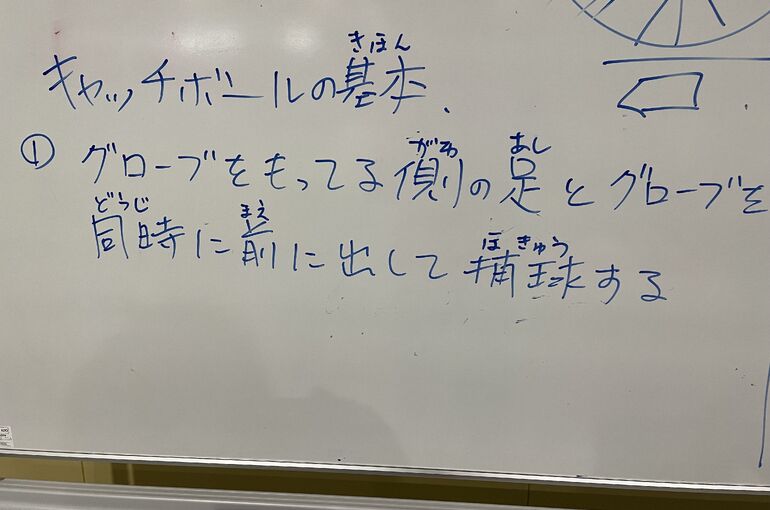 きほん
キャッチボールの基本.
がわ あし
① グローブをもってる側の足とグローブを
どうじ まえ
同時に前に出して捕球する
ほきゅう